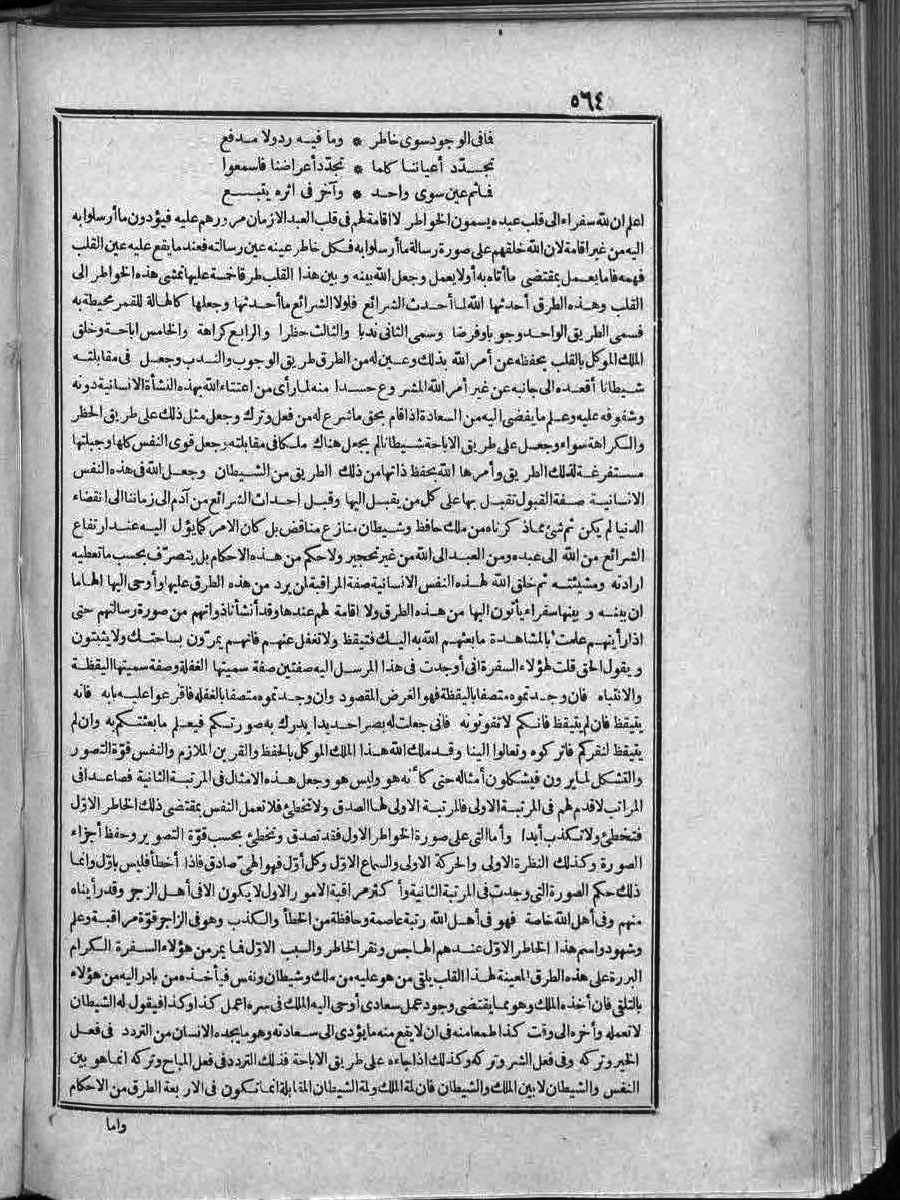 ٥٦٤
فما فى الوجود سوى خاطر * وما فيه رد ولا مدفع
تجدد أعياننا كلما * تجدد أعراضنا فاسمعوا
فما ثم عين سوى واحد * وآخر فى اثره يتبع
اعلم ان لله سفراء الى قلب عبده يسمون الخواطر لا اقامة لهم فى قلب العبد الازمان مرورهم عليه فيؤدون ما أرسلوا به
اليه من غير اقامة لان الله خلقهم على صورة رسالة ما أرسلوا به فكل خاطر عينه عين رسالته فعند ما يقع عليه عين القلب
فهمه فاما يعمل بمقتضى ما أتاه به أو لا يعمل وجعل الله بينه وبين هذا القلب طرقا خسة عليها تمشى هذه الخواطر الى
القلب وهذه الطرق أحدثها الله لما أحدث الشرائع فلولا الشرائع ما أحدثها وجعلها كالهالة للقمر محيطة به
فسمى الطريق الواحد وجوبا وفرضا وسمى الثانى ندبا والثالث حظرا والرابع كراهة والخامس اباحة وخلق
الملك الموكل بالقلب يحفظه عن أمر الله بذلك وعين له من الطرق طريق الوجوب والندب وجعل فى مقابلته
شيطانا أقعده الى جانبه عن غير أمر الله المشروع حسدا منه لما رأى من اعتناء الله بهذه النشأة الانسانية دونه
وشفوفه عليه وعلم ما يفضى اليه من السعادة اذا قام بحق ما شرع له من فعل وترك وجعل مثل ذلك على طريق الحظر
والكراهة سواء وجعل على طريق الاباحة شيطانا لم يجعل هناك ملكا فى مقابلته وجعل قوى النفس كلها وجبلتها
مستفرغة لذلك الطريق وأمرها الله بحفظ ذاتها من ذلك الطريق من الشيطان وجعل الله فى هذه النفس
الانسانية صفة القبول تقبل بها على كل من يقبل اليها وقبل احداث الشرائع من آدم الى زماننا الى انقضاء
الدنيا لم يكن ثم شئ مماذ كرناه من ملك حافظ وشيطان منازع مناقض بل كان الامر كما يؤل اليه عند ارتفاع
الشرائع من الله الى عبده ومن العبد الى الله من غير تحجير ولا حكم من هذه الاحكام بل يتصرف بحسب ما تعطيه
ارادته ومشيئته ثم خلق الله لهذه النفس الانسانية صفة المراقبة لمن يرد من هذه الطرق عليها وأوحى اليها الهاما
ان بينه وبينها سفراء يأتون اليها من هذه الطرق ولا اقامة لهم عندها وقد أنشأنا ذواتهم من صورة رسالتهم حتى
اذا رأيتهم علمت بالمشاهدة ما بعثهم الله به اليك فتيقظ ولا تغفل عنهم فانهم يمرون بساحتك ولا يثبتون
ويقول الحق قلت لهؤلاء السفرة انى أوجدت فى هذا المرسل اليه صفتين صفة سميتها الغفلة وصفة سميتها اليقظة
والانتباه فان وجدتموه متصفا باليقظة فهو الغرض المقصود وان وجدتموه متصفا بالغفله فاقرعوا عليه بابه فانه
يتيقظ فان لم يتيقظ فانكم لا تفوتونه فانى جعلت له بصرا حديدا يدرك به صورتكم فيعلم ما بعثتكم به وان لم
يتيقظ لنقركم فاتركوه وتعالوا الينا وقد ملك الله هذا الملك الموكل بالحفظ والقرين الملازم والنفس قوة التصور
والتشكل لما يرون فيشكلون أمثاله حتى كأنه هو وليس هو وجعل هذه الامثال فى المرتبة الثانية فصاعدا فى
المراتب لا قدم لهم فى المرتبة الاولى فالمرتبة الاولى لها الصدق ولا تخطئ فلا تعمل النفس بمقتضى ذلك الخاطر الاول
فتخطئ ولا تكذب أبدا وأما التى على صورة الخواطر الاول فقد تصدق وتخطئ بحسب قوة التصوير وحفظ أجزاء
الصورة وكذلك النظرة الاولى والحركة الاولى والسماع الاول وكل أول فهو الهى صادق فاذا أخطأ فليس باول وانما
ذلك حكم الصورة التى وجدت فى المرتبة الثانية وأكثر مراقبة الامور الاول لا يكون الا فى أهل الزجر وقد رأيناه
منهم وفى أهل الله خاصة فهو فى أهل الله رتبة عاصمة وحافظة من الخطأ والكذب وهو فى الزاجر قوة مراقبة وعلم
وشهود واسم هذا الخاطر الاول عندهم الهاجس ونقر الخاطر والسبب الاول فما يمر من هؤلاء السفرة الكرام
البررة على هذه الطرق المعينة لهذا القلب يلقى من هو عليه من ملك وشيطان ونفس فيأخذه من بادر اليه من هؤلاء
بالتلقى فان أخذه الملك وهو مما يقتضى وجود عمل سعادى أوحى اليه الملك فى سره اعمل كذا وكذا فيقول له الشيطان
لا تعمله وأخره الى وقت كذا طمعا منه فى ان لا يقع منه ما يؤدى الى سعادته وهو ما يجده الانسان من التردد فى فعل
الخير وتركه وفى فعل الشر وتركه وكذلك اذا جاءه على طريق الاباحة فذلك التردد فى فعل المباح وتركه انما هو بين
النفس والشيطان لا بين الملك والشيطان فان لمة الملك ولمة الشيطان المقابلة انما تكون فى الاربعة الطرق من الاحكام
واما